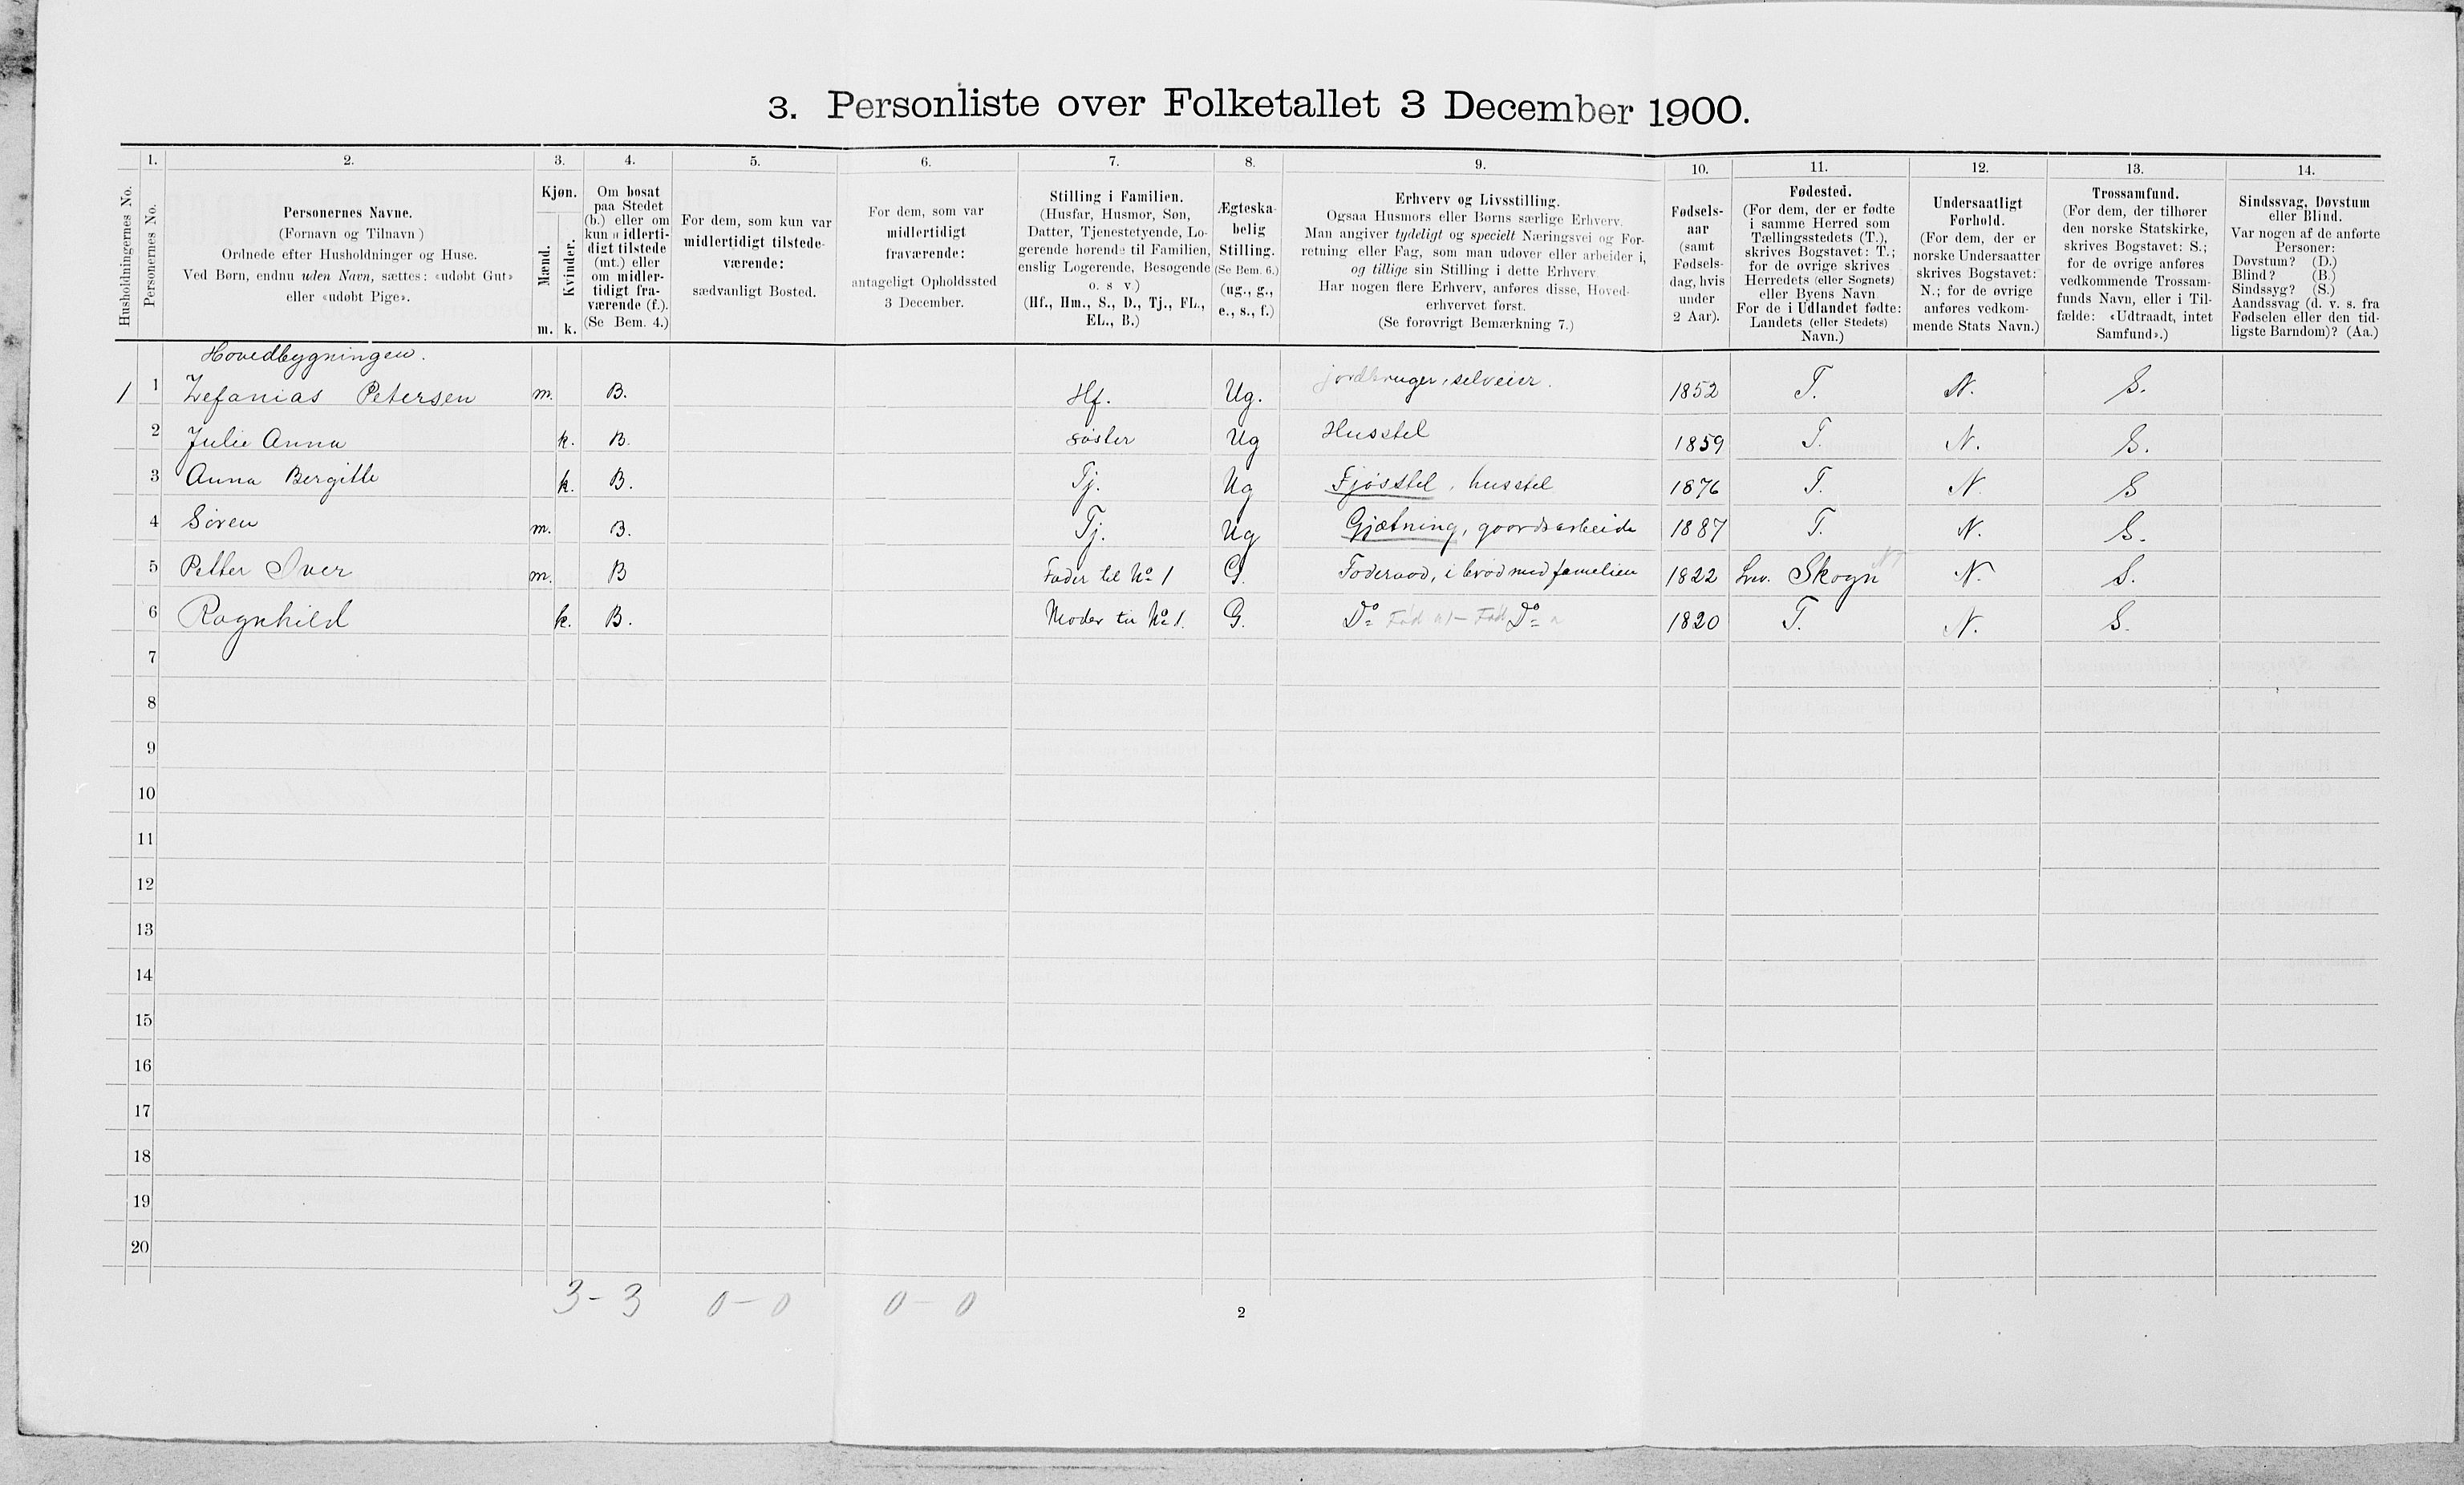 3. Personliste over Folketallet 3 December 1900.
Husholdningernes No.
1. Personernes No.
2. Personernes Navne.
(Fornavn og Tilnavn)
Ordnede efter Husholdninger og Huse.
Ved Børn, endnu uden Navn, sættes: «udøbt Gut»
eller «udøbt Pige».
3. Kjøn.
Mænd. m.
Kvinder. k.
4. Om bosat
paa Stedet
(b.) eller om
kun midlerti-
digt tilstede
(mt.) eller
om midler-
tidigt fra-
værende (f.).
(Se Bem. 4.)
5. For dem, som kun var
midlertidigt tilstede-
værende:
sædvanligt Bosted.
6. For dem, som var
midlertidigt
fraværende:
antageligt Opholdssted
3 December.
7. Stilling i Familien.
(Husfar, Husmor, Søn,
Datter, Tjenestetyende, Lo-
gerende hørende til Familien,
enslig Logerende, Besøgende
o. s. v.)
(Hf., Hm., S., D., Tj., FL.,
EL., B.)
8. Ægteska-
belig
Stilling.
(Se Bem. 6.)
(ug., g.,
e., s., f.)
9. Erhverv og Livsstilling.
Ogsaa Husmors eller Børns særlige Erhverv.
Man angiver tydeligt og specielt Næringsvei og For-
retning eller Fag, som man udøver eller arbeider i,
og tillige sin Stilling i dette Erhverv.
Har nogen flere Erhverv, anføres disse, Hoved-
erhvervet først.
(Se forøvrigt Bemærkning 7.)
10. Fødsels-
aar
(samt
Fødsels-
dag, hvis
under
2 Aar).
11. Fødested.
(For dem, der er fødte
i samme Herred som
Tællingsstedets (T.),
skrives Bogstavet: T.;
for de øvrige skrives
Herredets (eller Sognets)
eller Byens Navn.
For de i Udlandet fødte:
Landets (eller Stedets)
Navn.)
12. Undersaatligt
Forhold.
(For dem, der er
norske Undersaatter
skrives Bogstavet:
N.; for de øvrige
anføres vedkom-
mende Stats Navn.)
13. Trossamfund.
(For dem, der tilhører
den norske Statskirke,
skrives Bogstavet: S.;
for de øvrige anføres
vedkommende Trossam-
funds Navn, eller i Til-
fælde: «Udtraadt, intet
Samfund».)
14. Sindssvag, Døvstum
eller Blind.
Var nogen af de anførte
Personer:
Døvstum? (D.)
Blind? (B.)
Sindssyg? (S.)
Aandssvag (d. v. s. fra
Fødselen eller den tid-
ligste Barndom)? (Aa.)
Hovedbygningen.
1 1 Zefanias Petersen m. B. Hf. Ug. jordbruger, selveier. 1852 T. N. S.
2 Julie Anna k. B. søster Ug Husstel 1859 T. N. S.
3 Anna Bergitte k. B. Tj. Ug Fjøsstel, husstel 1876 T. N. S
4 Søren m. B. Tj. Ug Gjætning, gaardsarbeide 1887 T. N. S.
5 Petter Iver m. B Fader til No 1 G. Foderaad, i brød med familien 1822 Skogn N. S.
6 Ragnhild k. B. Moder til No 1. G. Do Do 1820 T. N. S.
7
8
9
10
11
12
13
14
15
16
17
18
19
20
3 - 3 0 - 0 0 - 0
2